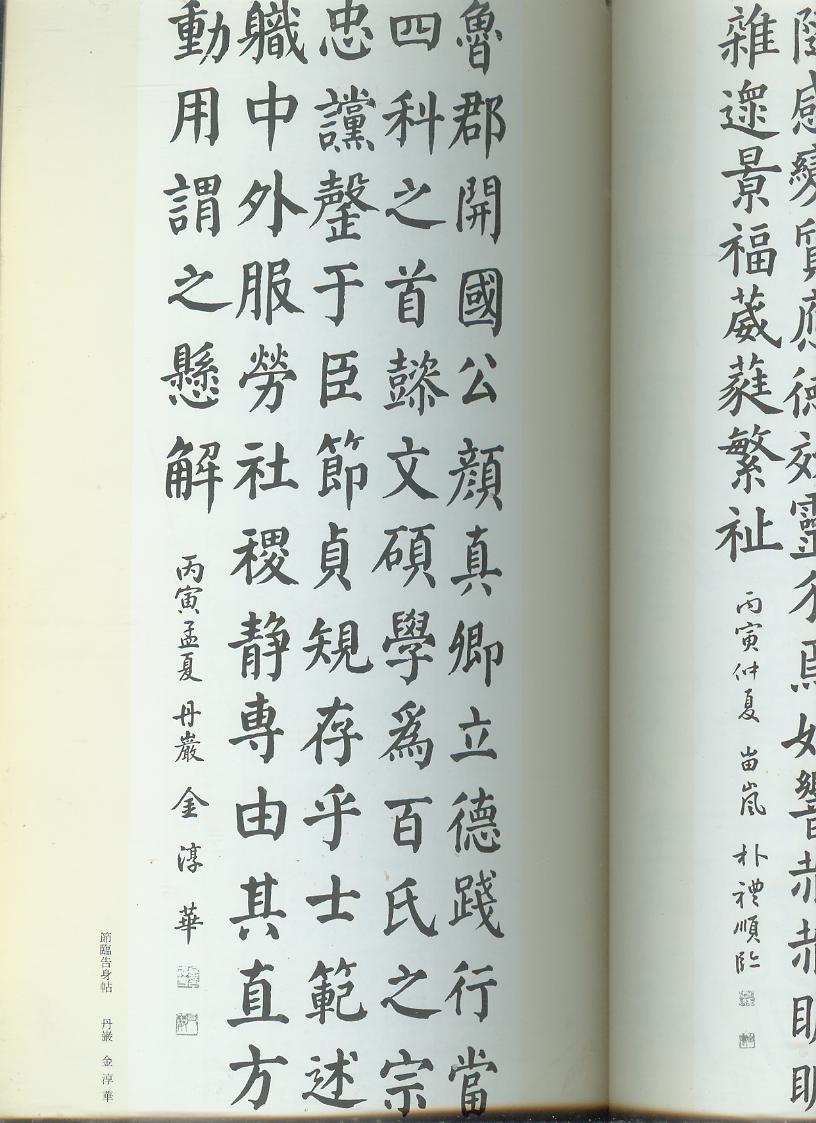 感變質應德效靈介焉如響赫赫明明
雜遝景福葳蕤繁祉
丙寅仲夏 嵐 朴禮順臨
魯郡開國公顏真卿立德踐行當
四科之首懿文碩學爲百氏之宗
忠讜罄于臣節貞規存乎士範述
軄中外服勞社稷静專由其直方
動用謂之懸解
丙寅孟夏 丹巖 金淳華
節臨告身帖 丹巖 金淳華